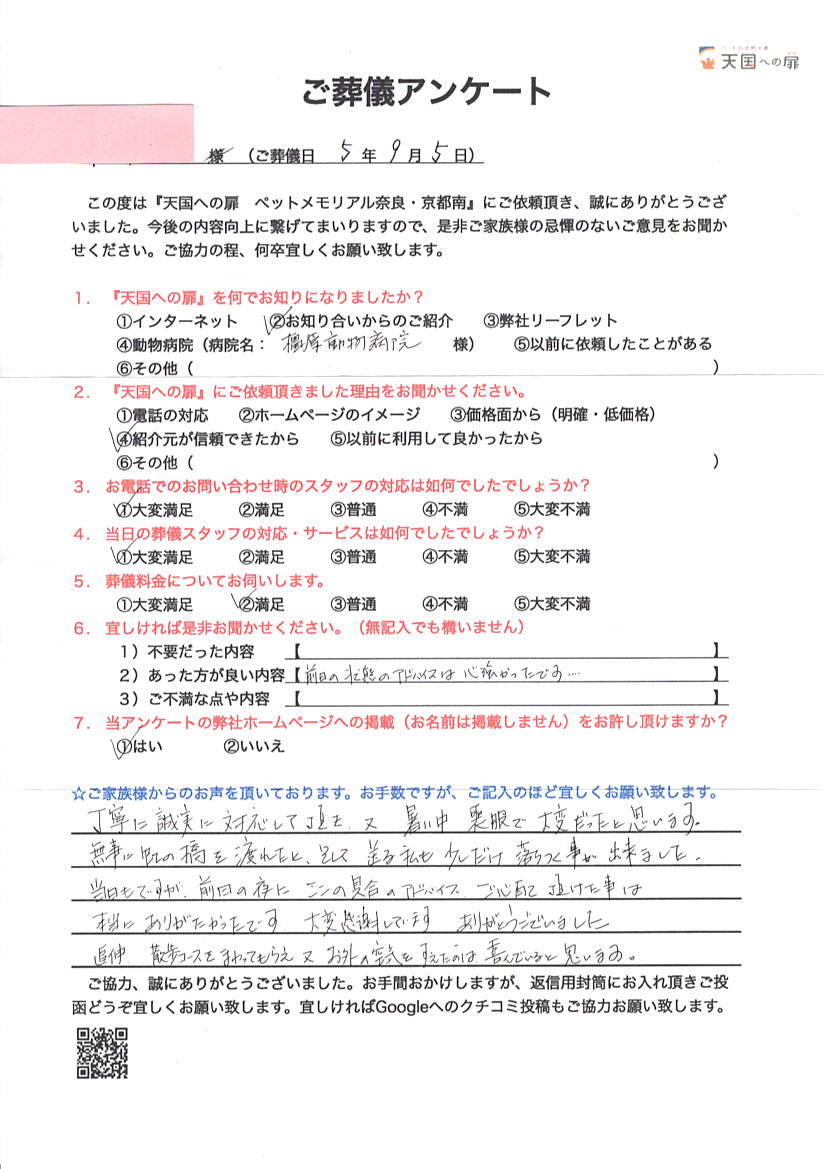 天国への扉
ご葬儀アンケート
様 (ご葬儀日 5 年 9 月 5 日)
この度は『天国への扉 ペットメモリアル奈良・京都南』にご依頼頂き、誠にありがとうござ
いました。今後の内容向上に繋げてまいりますので、是非ご家族様の忌憚のないご意見をお聞か
せください。ご協力の程、何卒宜しくお願い致します。
1. 『天国への扉』を何でお知りになりましたか?
①インターネット ②お知り合いからのご紹介 ③弊社リーフレット
④動物病院(病院名: 橿原動物病院 様) ⑤以前に依頼したことがある
⑥その他( )
2. 『天国への扉』にご依頼頂きました理由をお聞かせください。
①電話の対応 ②ホームページのイメージ ③価格面から(明確・低価格)
④紹介元が信頼できたから ⑤以前に利用して良かったから
⑥その他( )
3. お電話でのお問い合わせ時のスタッフの対応は如何でしたでしょうか?
①大変満足 ②満足 ③普通 ④不満 ⑤大変不満
4. 当日の葬儀スタッフの対応・サービスは如何でしたでしょうか?
①大変満足 ②満足 ③普通 ④不満 ⑤大変不満
5. 葬儀料金についてお伺いします。
①大変満足 ②満足 ③普通 ④不満 ⑤大変不満
6. 宜しければ是非お聞かせください。(無記入でも構いません)
1)不要だった内容 【 】
2)あった方が良い内容【前日の状態のアドバイスは心強かったです…. 】
3)ご不満な点や内容 【 】
7. 当アンケートの弊社ホームページへの掲載(お名前は掲載しません)をお許し頂けますか?
①はい ②いいえ
☆ご家族様からのお声を頂いております。お手数ですが、ご記入のほど宜しくお願い致します。
丁寧に誠実に対応して頂き、又 暑い中 喪服で大変だったと思います。
無事に虹の橋を渡れたと、そして 送る私も 少しだけ 落ちつく事が 出来ました。
当日もですが、前日の夜に ここの具合のアドバイス、ご心配て 頂けた事は
本当に ありがたかったです 大変感謝しています ありがとうございました
追伸. 散歩コースをまわってもらえ 又 お外の空気をすえたのは 喜んでいると思います。
ご協力、誠にありがとうございました。お手間おかけしますが、返信用封筒にお入れ頂きご投
函どうぞ宜しくお願い致します。宜しければGoogleへのクチコミ投稿もご協力お願い致します。